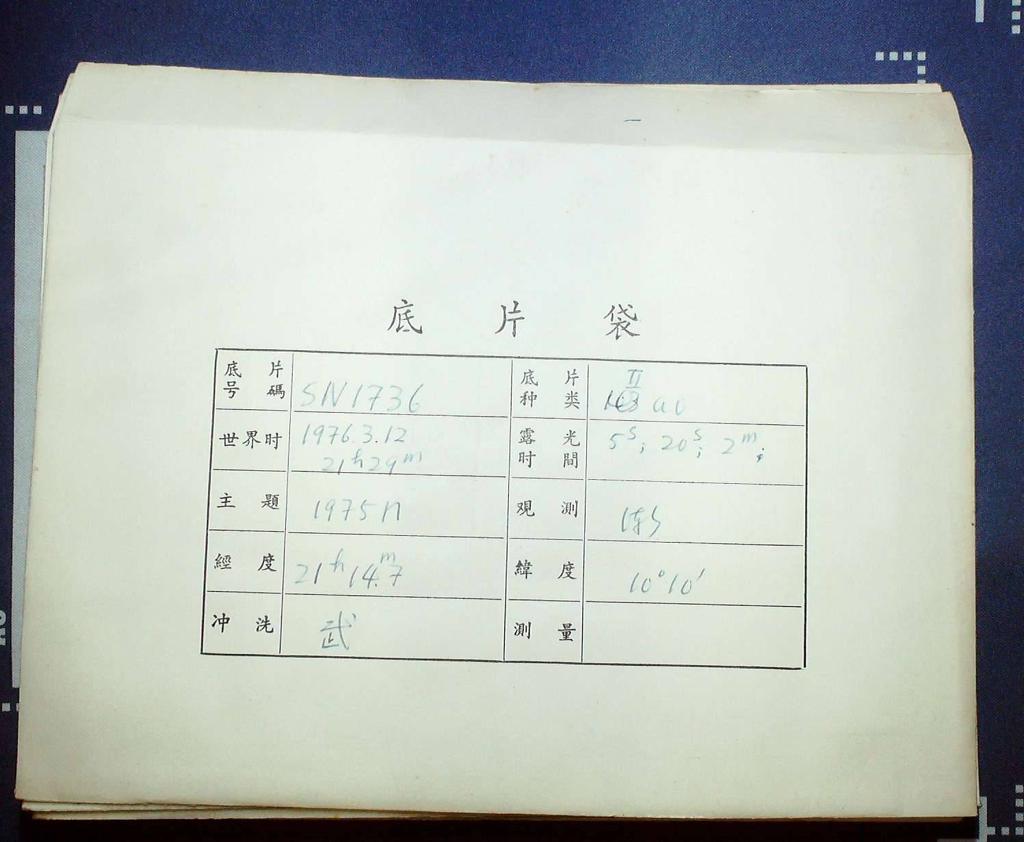 底片袋
底片号碼 SN1736
底片种类 II aO
世界时 1976.3.12
21h29m
露光时間 5s; 20s; 2m;
主題 1975n
观測
經度 21h14m.7
緯度 10°10′
冲洗 武
測量